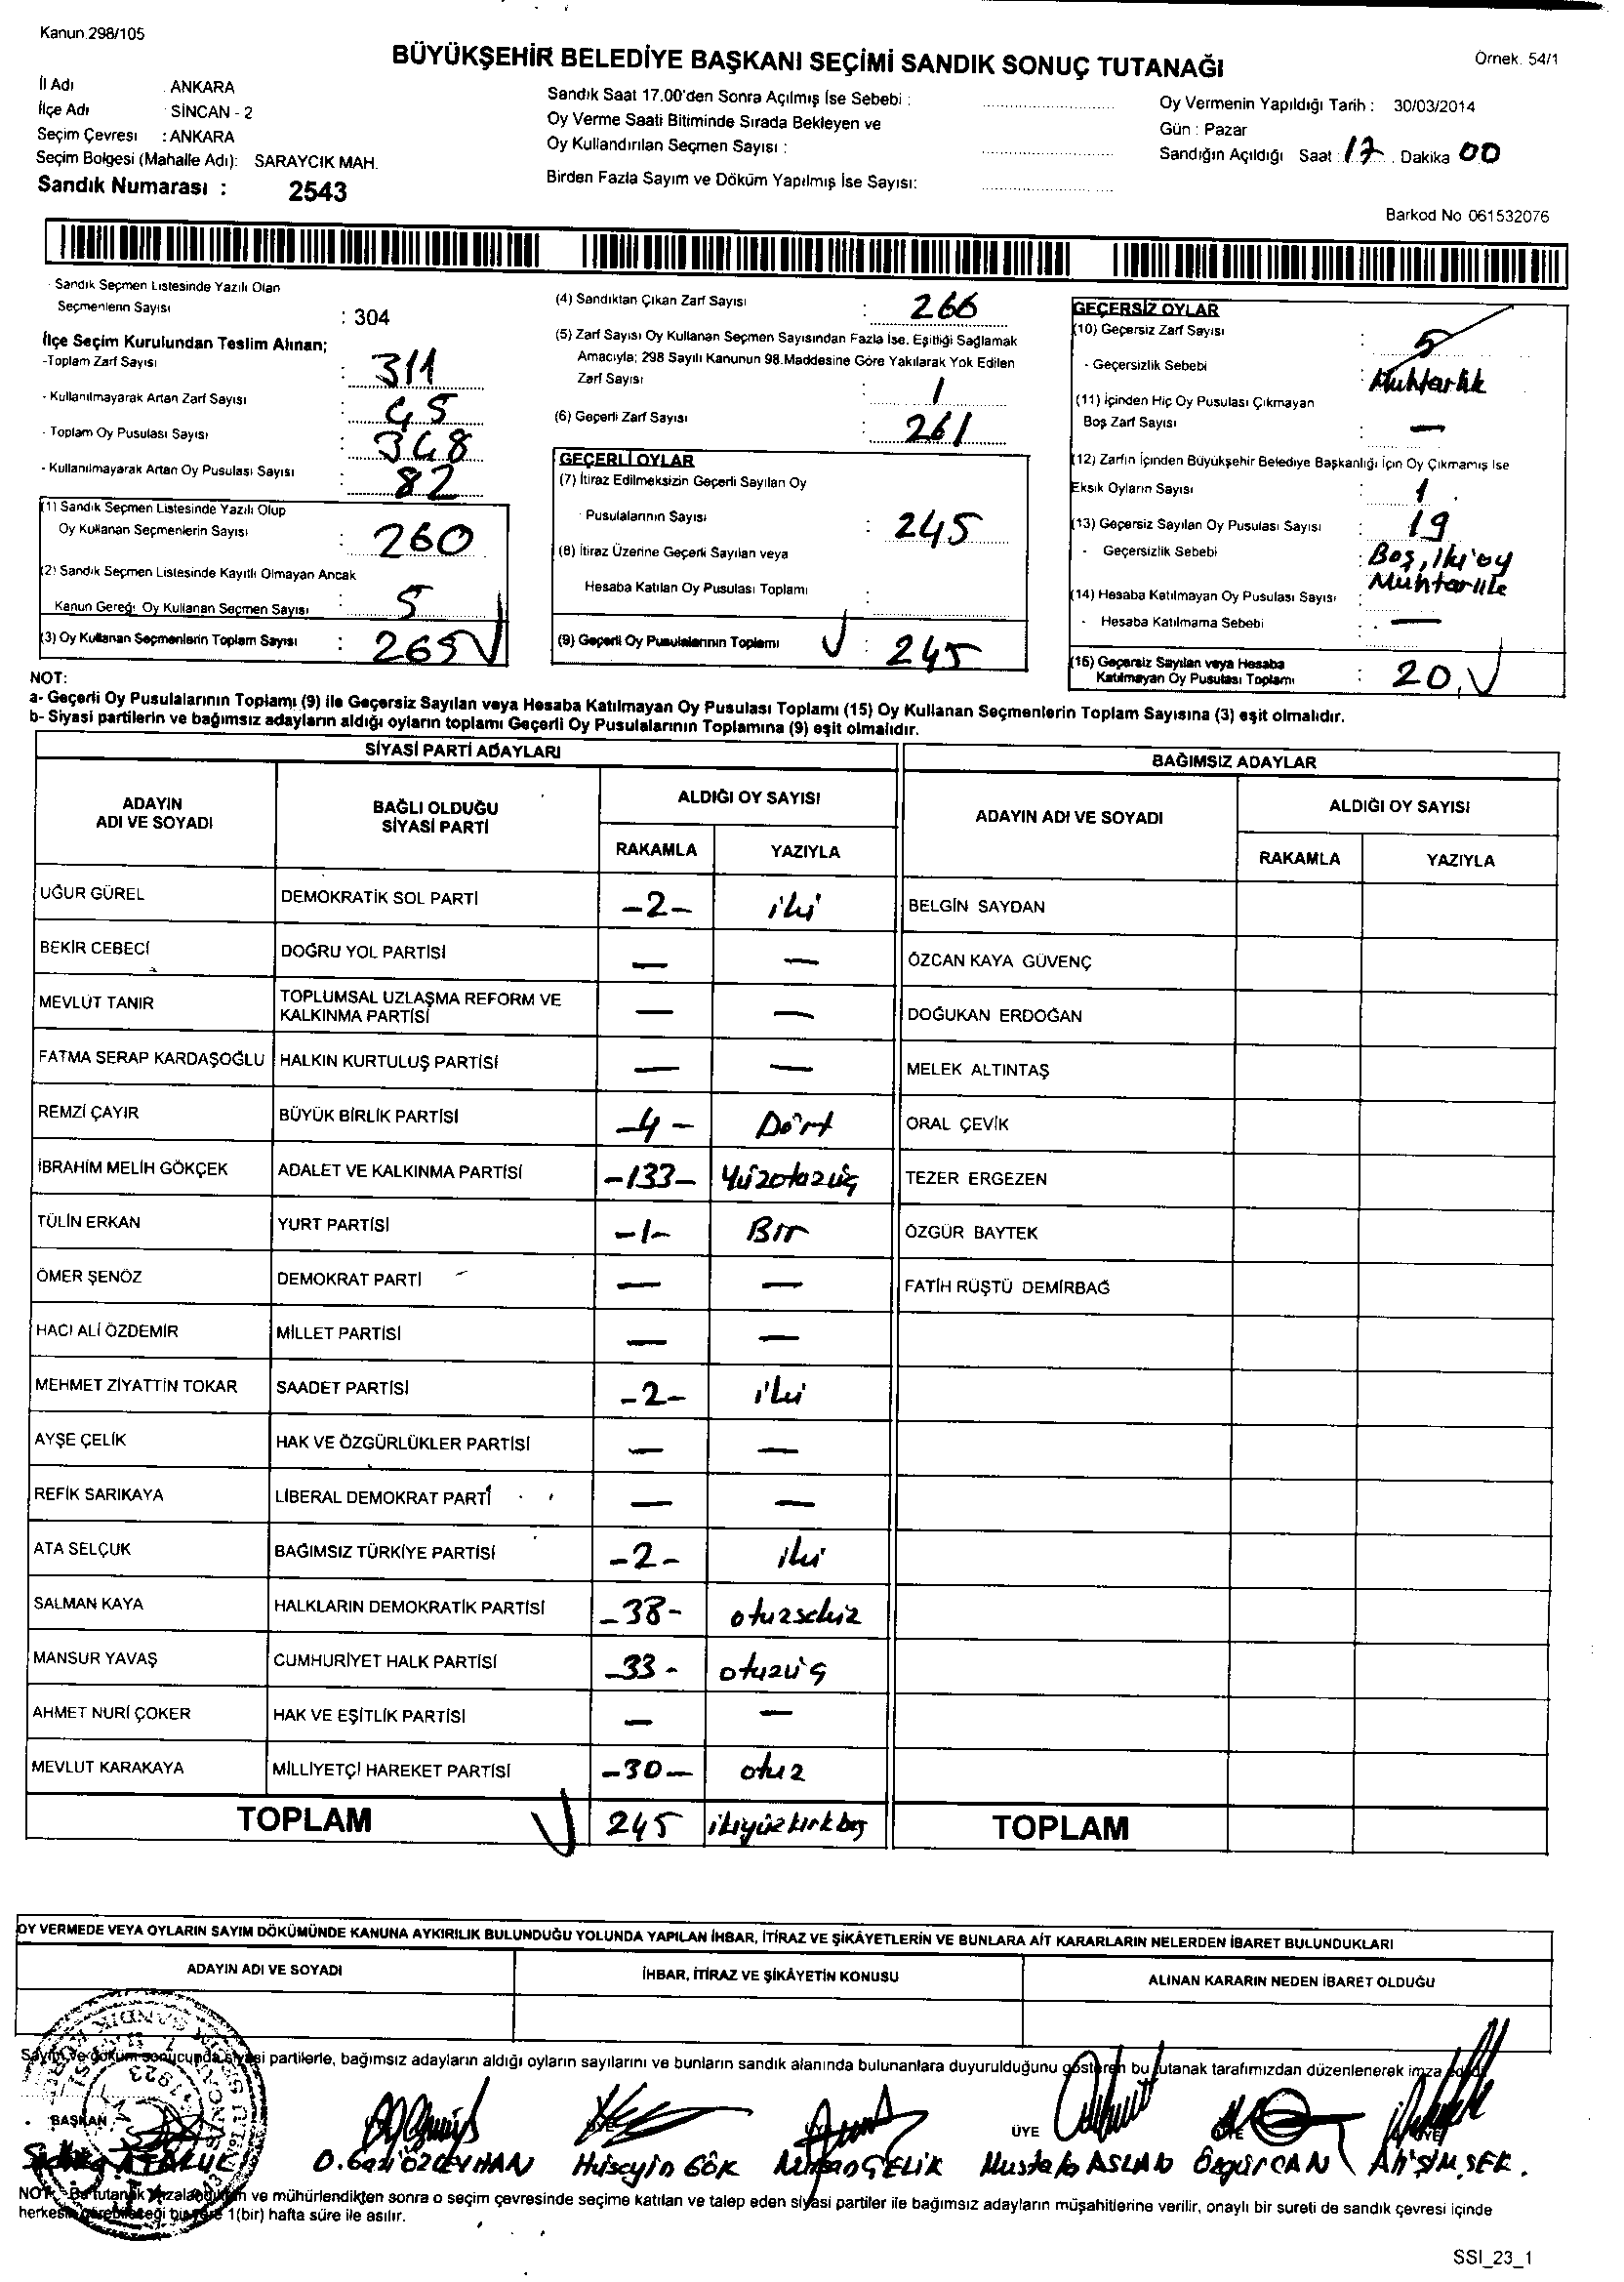 Kanun 298/105
BÜYÜKŞEHİR BELEDİYE BAŞKANI SEÇİMİ SANDIK SONUÇ TUTANAĞI
Örnek. 54/1
İl Adı : ANKARA
İlçe Adı : SİNCAN - 2
Seçim Çevresi : ANKARA
Seçim Bölgesi (Mahalle Adı): SARAYCIK MAH.
Sandık Numarası : 2543
Sandık Saat 17.00'den Sonra Açılmış İse Sebebi :
Oy Verme Saati Bitiminde Sırada Bekleyen ve
Oy Kullandırılan Seçmen Sayısı :
Birden Fazla Sayım ve Döküm Yapılmış İse Sayısı:
Oy Vermenin Yapıldığı Tarih : 30/03/2014
Gün : Pazar
Sandığın Açıldığı Saat : 17 Dakika 00
Barkod No 061532076
- Sandık Seçmen Listesinde Yazılı Olan
Seçmenlerin Sayısı : 304
İlçe Seçim Kurulundan Teslim Alınan;
-Toplam Zarf Sayısı : 311
- Kullanılmayarak Artan Zarf Sayısı : 45
- Toplam Oy Pusulası Sayısı : 348
- Kullanılmayarak Artan Oy Pusulası Sayısı : 82
(1) Sandık Seçmen Listesinde Yazılı Olup
Oy Kullanan Seçmenlerin Sayısı : 260
(2) Sandık Seçmen Listesinde Kayıtlı Olmayan Ancak
Kanun Gereği Oy Kullanan Seçmen Sayısı : 5
(3) Oy Kullanan Seçmenlerin Toplam Sayısı : 265
(4) Sandıktan Çıkan Zarf Sayısı : 266
(5) Zarf Sayısı Oy Kullanan Seçmen Sayısından Fazla İse. Eşitliği Sağlamak
Amacıyla; 298 Sayılı Kanunun 98.Maddesine Göre Yakılarak Yok Edilen
Zarf Sayısı : 1
(6) Geçerli Zarf Sayısı : 261
GEÇERLİ OYLAR
(7) İtiraz Edilmeksizin Geçerli Sayılan Oy
Pusulalarının Sayısı : 245
(8) İtiraz Üzerine Geçerli Sayılan veya
Hesaba Katılan Oy Pusulası Toplamı :
(9) Geçerli Oy Pusulalarının Toplamı : 245
GEÇERSİZ OYLAR
(10) Geçersiz Zarf Sayısı : 5
- Geçersizlik Sebebi : Muhtarlık
(11) İçinden Hiç Oy Pusulası Çıkmayan
Boş Zarf Sayısı : —
(12) Zarfın İçinden Büyükşehir Belediye Başkanlığı İçin Oy Çıkmamış İse
Eksik Oyların Sayısı : 1
(13) Geçersiz Sayılan Oy Pusulası Sayısı : 19
- Geçersizlik Sebebi : Boş, İki oy
Muhtarlık
(14) Hesaba Katılmayan Oy Pusulası Sayısı :
- Hesaba Katılmama Sebebi : —
(15) Geçersiz Sayılan veya Hesaba
Katılmayan Oy Pusulası Toplamı : 20
NOT:
a- Geçerli Oy Pusulalarının Toplamı (9) ile Geçersiz Sayılan veya Hesaba Katılmayan Oy Pusulası Toplamı (15) Oy Kullanan Seçmenlerin Toplam Sayısına (3) eşit olmalıdır.
b- Siyasi partilerin ve bağımsız adayların aldığı oyların toplamı Geçerli Oy Pusulalarının Toplamına (9) eşit olmalıdır.
SİYASİ PARTİ ADAYLARI
ADAYIN ADI VE SOYADI BAĞLI OLDUĞU SİYASİ PARTİ ALDIĞI OY SAYISI
RAKAMLA YAZIYLA
UĞUR GÜREL DEMOKRATİK SOL PARTİ -2- iki
BEKİR CEBECİ DOĞRU YOL PARTİSİ — —
MEVLÜT TANIR TOPLUMSAL UZLAŞMA REFORM VE KALKINMA PARTİSİ — —
FATMA SERAP KARDAŞOĞLU HALKIN KURTULUŞ PARTİSİ — —
REMZİ ÇAYIR BÜYÜK BİRLİK PARTİSİ -4- Dört
İBRAHİM MELİH GÖKÇEK ADALET VE KALKINMA PARTİSİ -133- Yüzotuzüç
TÜLİN ERKAN YURT PARTİSİ -1- Bir
ÖMER ŞENÖZ DEMOKRAT PARTİ — —
HACI ALİ ÖZDEMİR MİLLET PARTİSİ — —
MEHMET ZİYATTİN TOKAR SAADET PARTİSİ -2- iki
AYŞE ÇELİK HAK VE ÖZGÜRLÜKLER PARTİSİ — —
REFİK SARIKAYA LİBERAL DEMOKRAT PARTİ — —
ATA SELÇUK BAĞIMSIZ TÜRKİYE PARTİSİ -2- iki
SALMAN KAYA HALKLARIN DEMOKRATİK PARTİSİ -38- otuzsekiz
MANSUR YAVAŞ CUMHURİYET HALK PARTİSİ -33- otuzüç
AHMET NURİ ÇOKER HAK VE EŞİTLİK PARTİSİ — —
MEVLÜT KARAKAYA MİLLİYETÇİ HAREKET PARTİSİ -30- otuz
TOPLAM 245 ikiyüzkırkbeş
BAĞIMSIZ ADAYLAR
ADAYIN ADI VE SOYADI ALDIĞI OY SAYISI
RAKAMLA YAZIYLA
BELGİN SAYDAN
ÖZCAN KAYA GÜVENÇ
DOĞUKAN ERDOĞAN
MELEK ALTINTAŞ
ORAL ÇEVİK
TEZER ERGEZEN
ÖZGÜR BAYTEK
FATİH RÜŞTÜ DEMİRBAĞ
TOPLAM
OY VERMEDE VEYA OYLARIN SAYIM DÖKÜMÜNDE KANUNA AYKIRILIK BULUNDUĞU YOLUNDA YAPILAN İHBAR, İTİRAZ VE ŞİKÂYETLERİN VE BUNLARA AİT KARARLARIN NELERDEN İBARET BULUNDUKLARI
ADAYIN ADI VE SOYADI İHBAR, İTİRAZ VE ŞİKÂYETİN KONUSU ALINAN KARARIN NEDEN İBARET OLDUĞU
Sayım ve döküm sonucunda siyasi partilerle, bağımsız adayların aldığı oyların sayılarını ve bunların sandık alanında bulunanlara duyurulduğunu gösteren bu tutanak tarafımızdan düzenlenerek imza edildi
BAŞKAN ÜYE
O. Gazi ÖZCEYHAN Hüseyin GÖK ÇELİK Mustafa ASLAN Özgür CAN Ali ŞİMŞEK.
NOT: Bu tutanak imzalandıktan ve mühürlendikten sonra o seçim çevresinde seçime katılan ve talep eden siyasi partiler ile bağımsız adayların müşahitlerine verilir, onaylı bir sureti de sandık çevresi içinde
herkesin görebileceği bir yere 1(bir) hafta süre ile asılır.
SSI_23_1